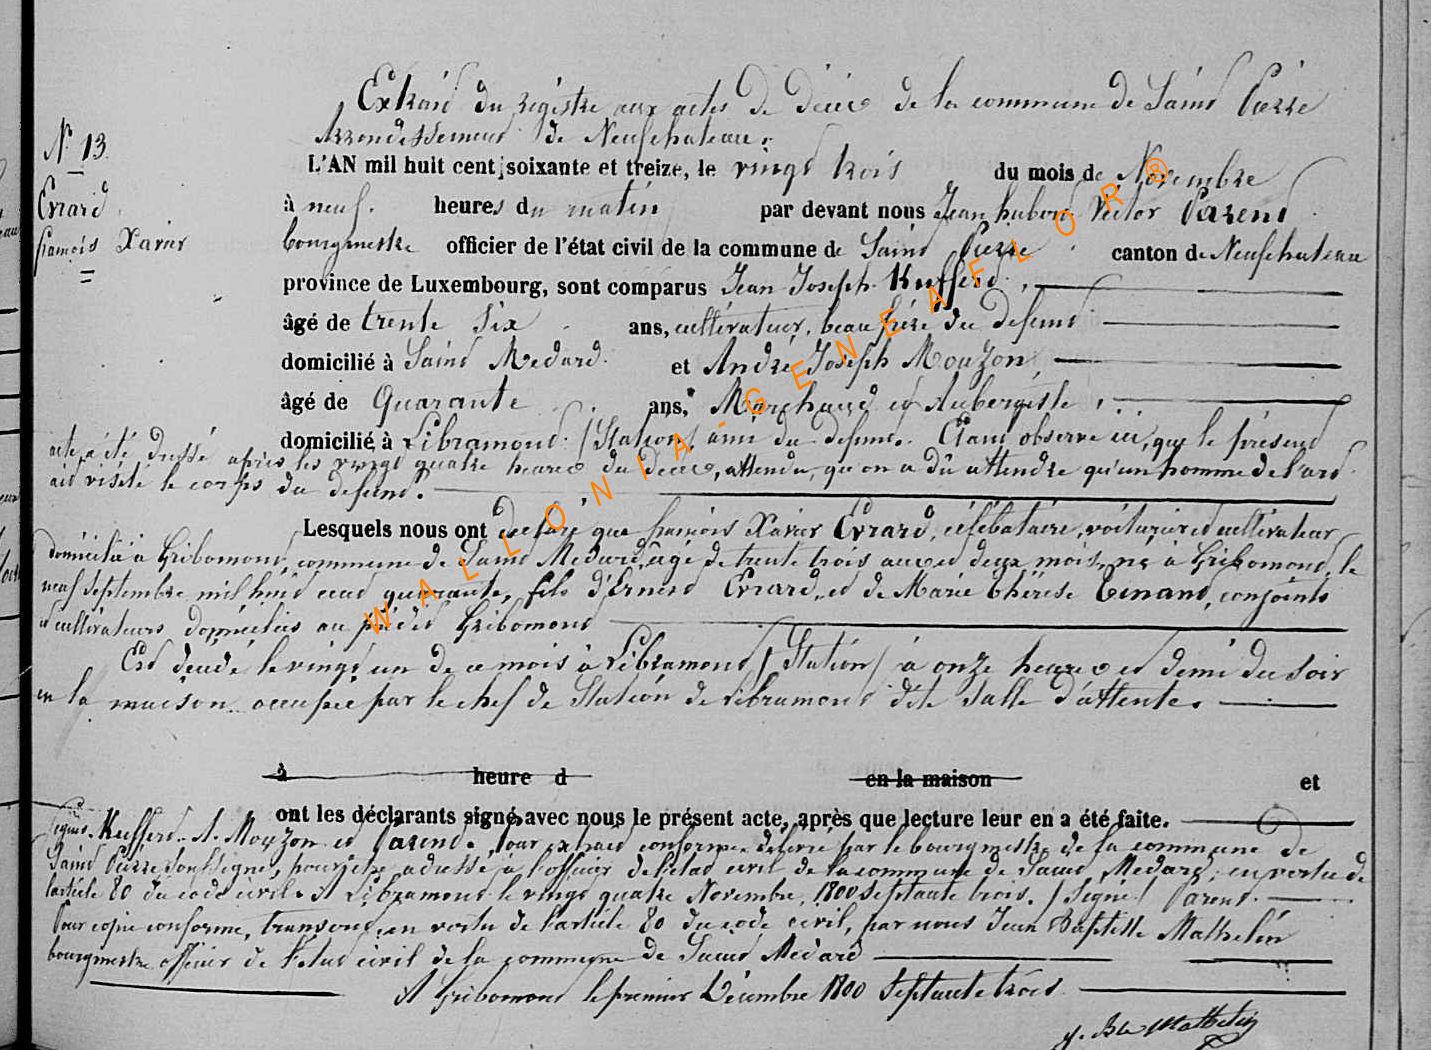 Extrait du régistre aux actes De Décès de la commune de Saint Pierre
Arrondissement de Neufchateau.
N° 13.
L'AN mil huit cent soixante et treize, le vingt trois du mois de Novembre
Evrard
à neuf heures du matin par devant nous Jean hubert Victor Parent
francois Xavier
bourgmestre officier de l'état civil de la commune de Saint Pierre canton de Neufchateau
province de Luxembourg, sont comparus Jean Joseph Kufferd
âgé de trente six ans, cultivateur, beau frère du defunt
domicilié à Saint Medard et André Joseph Mouzon,
âgé de Quarante ans, Marchand et Aubergiste,
domicilié à Libramont /Station/ ami du defunt. Etant observé ici, que le présent
acte a été Dressé après les vingt quatre heures du Deces, attendu, qu'on a dû attendre qu'un homme de l'art
ait visité le corps du defunt.
Lesquels nous ont declaré que francois Xavier Evrard, célébataire, voiturier et cultivateur
domicilié à Gribomont, commune de Saint Medard, âgé de trente trois ans et deux mois, né à Gribomont, le
neuf Septembre mil huit cent quarante, fils d'Ernest Evrard, et de Marie thérèse Tinant, conjoints
et cultivateurs domiciliés au prédit Gribomont
Est décédé le vingt un de ce mois à Libramont /Station/ à onze heures et demi du soir
en la maison occupée par le chef de Station de Libramont dite Salle d'attente.
à heure d en la maison et
ont les déclarants signé avec nous le présent acte, après que lecture leur en a été faite.
Signés. Kufferd. A. Mouzon et Parent. Pour extrait conforme délivré par le bourgmestre de la commune de
Saint Pierre soussigné, pour être adressé à l'officier de l'état civil de la commune de Saint Medard, en vertu de
l'article 80 du code civil. A Libramont le vingt quatre Novembre, 1800 septante trois. /Signé/ Parent.
Pour copie conforme, transcrit en vertu de l'article 80 du code civil, par nous Jean Baptiste Mathelin
bourgmestre officier de l'état civil de la commune de Saint Médard
A Gribomont le premier Décembre 1800 Septante trois
J. Bte Mathelin
WALLONIA-GENEAFLOR®